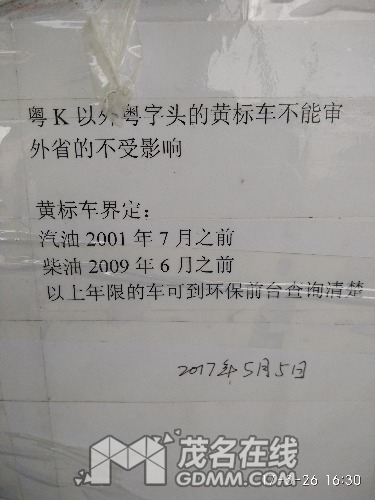 粤K以外粤字头的黄标车不能审
外省的不受影响
黄标车界定：
汽油2001年7月之前
柴油2009年6月之前
以上年限的车可到环保前台查询清楚
2017年5月5日
茂名在线
GDMM.COM
-26 16:30